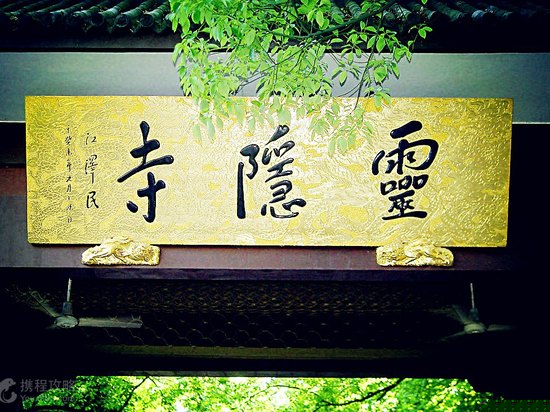 靈隱寺
江澤民
携程攻略